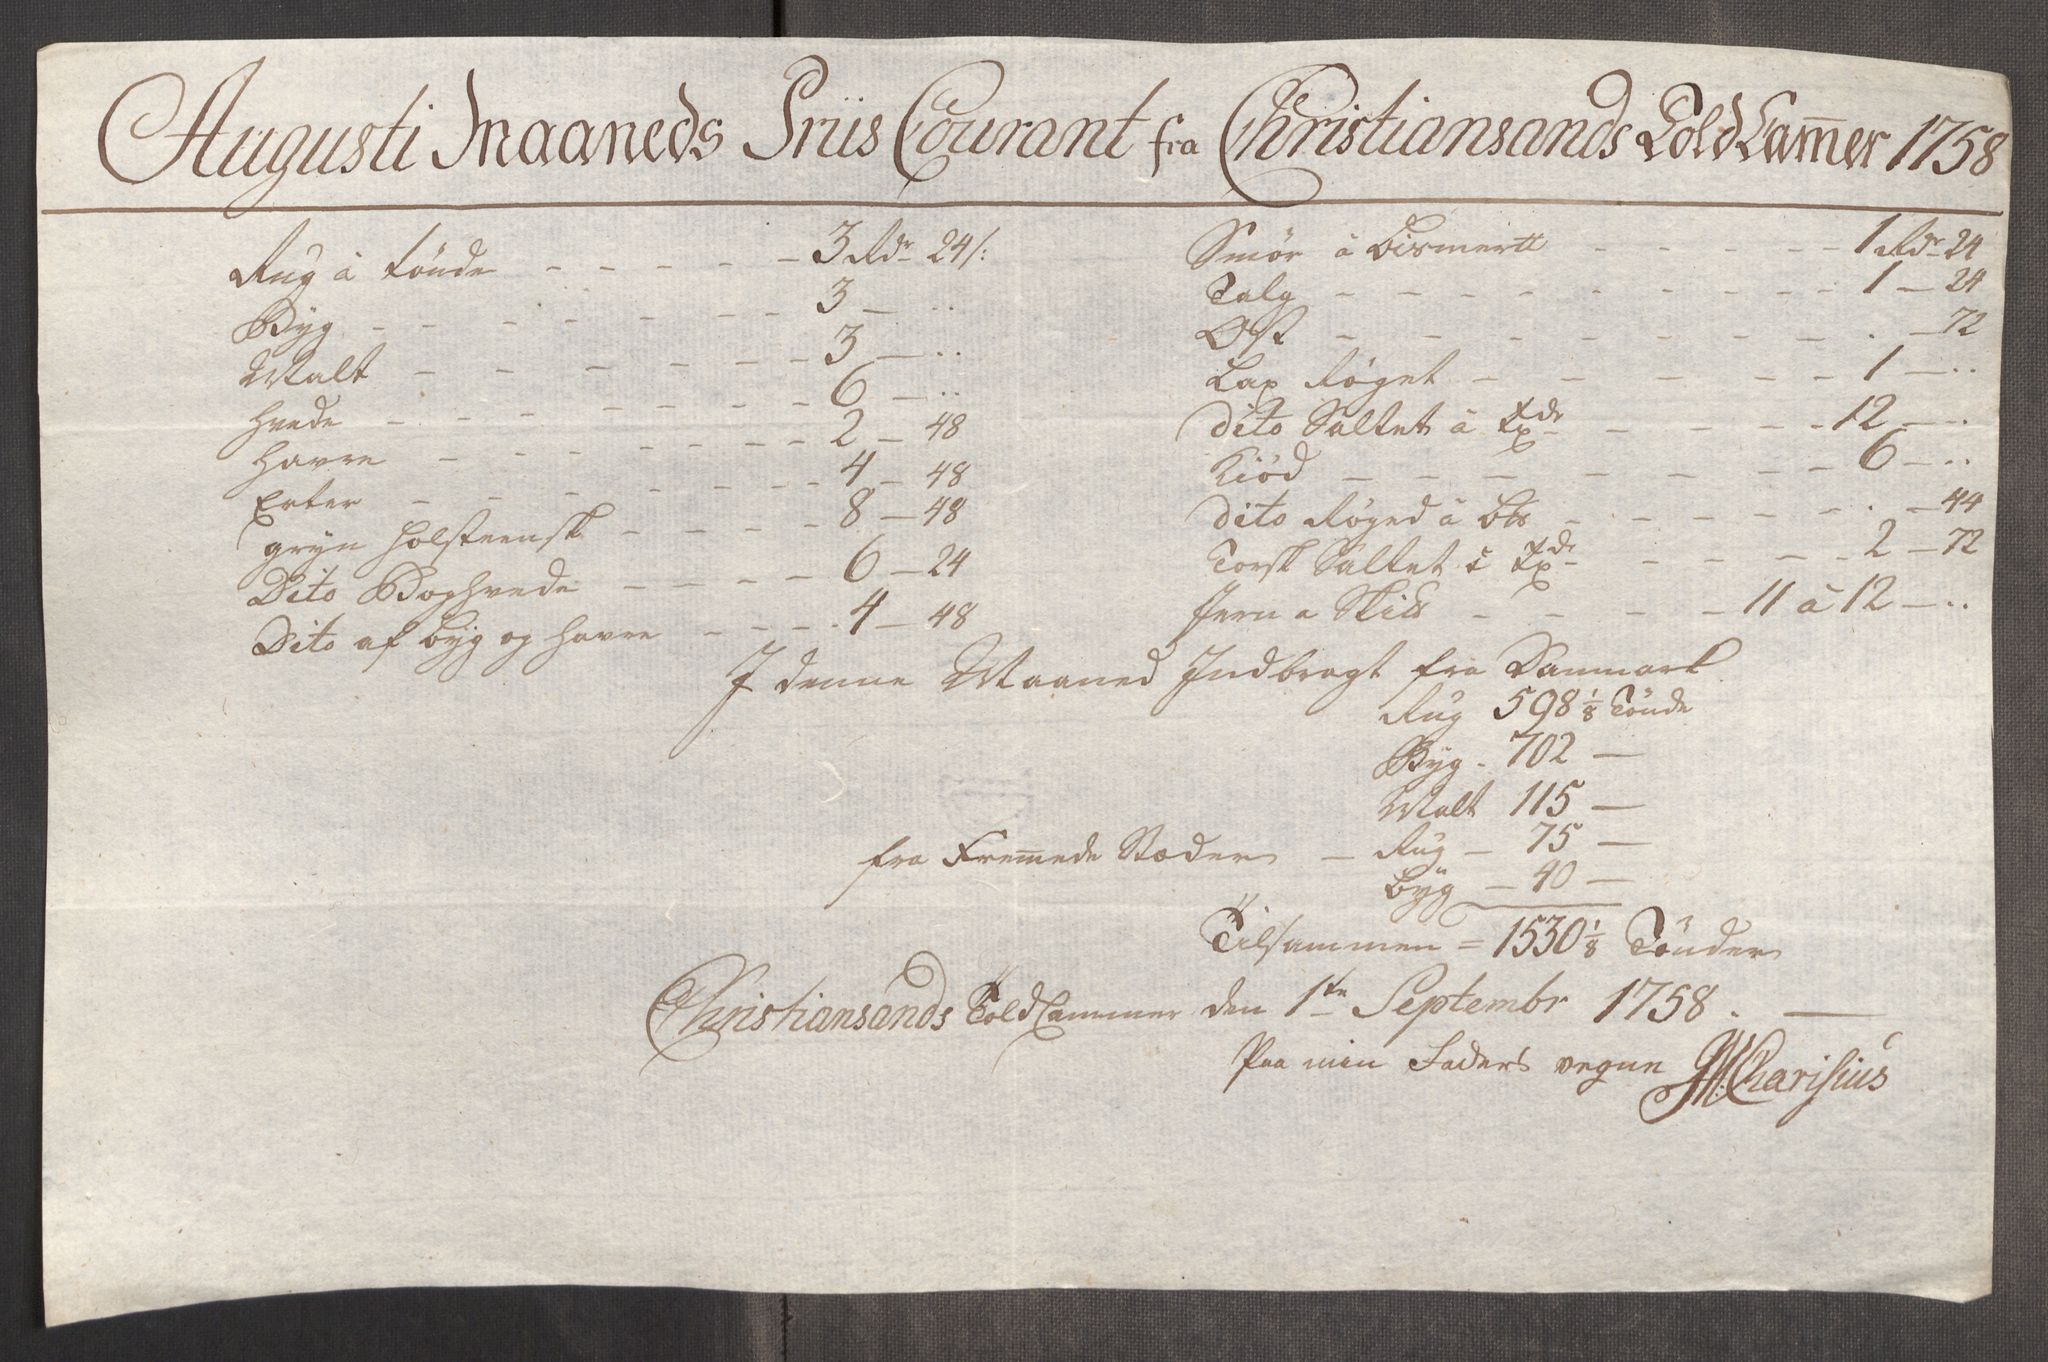 Augusti Maaneds Priis Courant fra Christiansands Told Cam̄er 1758
Rug â tönde - - - - - 3 Rdr 24 /:
Byg - - - - - - - - 3 - ..
Malt - - - - - - - 3 - ..
Hvede - - - - - - - 6 - ..
Havre - - - - - - - 2 - 48
Erter - - - - - - - 4 - 48
gryn holsteensk - - - - 8 - 48
Dito Boghvede - - - - 6 - 24
Dito af byg og havre - - - 4 - 48
Smör â Bismertt - - - - - 1 Rdr 24
Talg - - - - - - - - - - 1 - 24
Ost - - - - - - - - - . - 72
Lax Røget - - - - - - 1 - ..
dito Saltet â - - - - - 12 - ..
Kiöd - - - - - - - - 6 - ..
dito Røged â - - - - - . - 44
Torsk Saltet - - - - 2 - 72
Jern a - - - - 11 â 12 - ..
J denne Maaned Jndbragt fra Danmark
Rug 598 1/8 Tönde
Byg - 702 -
Malt 115 -
fra Frem̄ede Stæder - Rug - 75 -
byg - 40 -
Tilsammen = 1530 1/8 Tönder
Christiansands Told Cammer den 1te Septembr 1758. -
Paa min Faders vegne Charisius